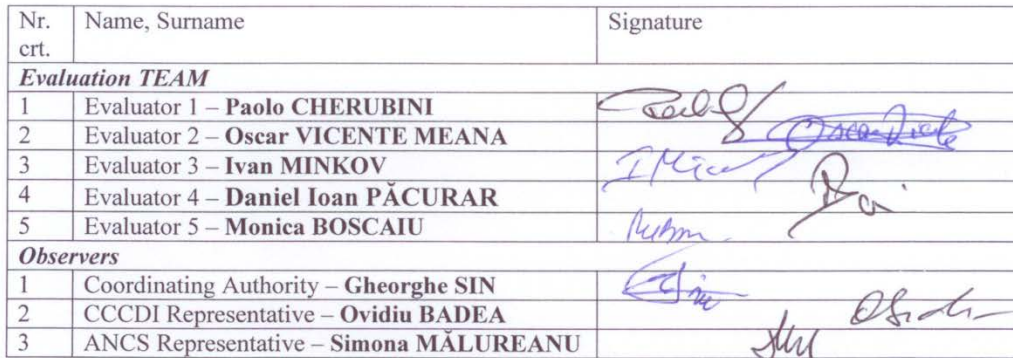 Nr. crt. Name, Surname Signature
Evaluation TEAM
1 Evaluator 1 – Paolo CHERUBINI
2 Evaluator 2 – Oscar VICENTE MEANA
3 Evaluator 3 – Ivan MINKOV
4 Evaluator 4 – Daniel Ioan PĂCURAR
5 Evaluator 5 – Monica BOSCAIU
Observers
1 Coordinating Authority – Gheorghe SIN
2 CCCDI Representative – Ovidiu BADEA
3 ANCS Representative – Simona MĂLUREANU